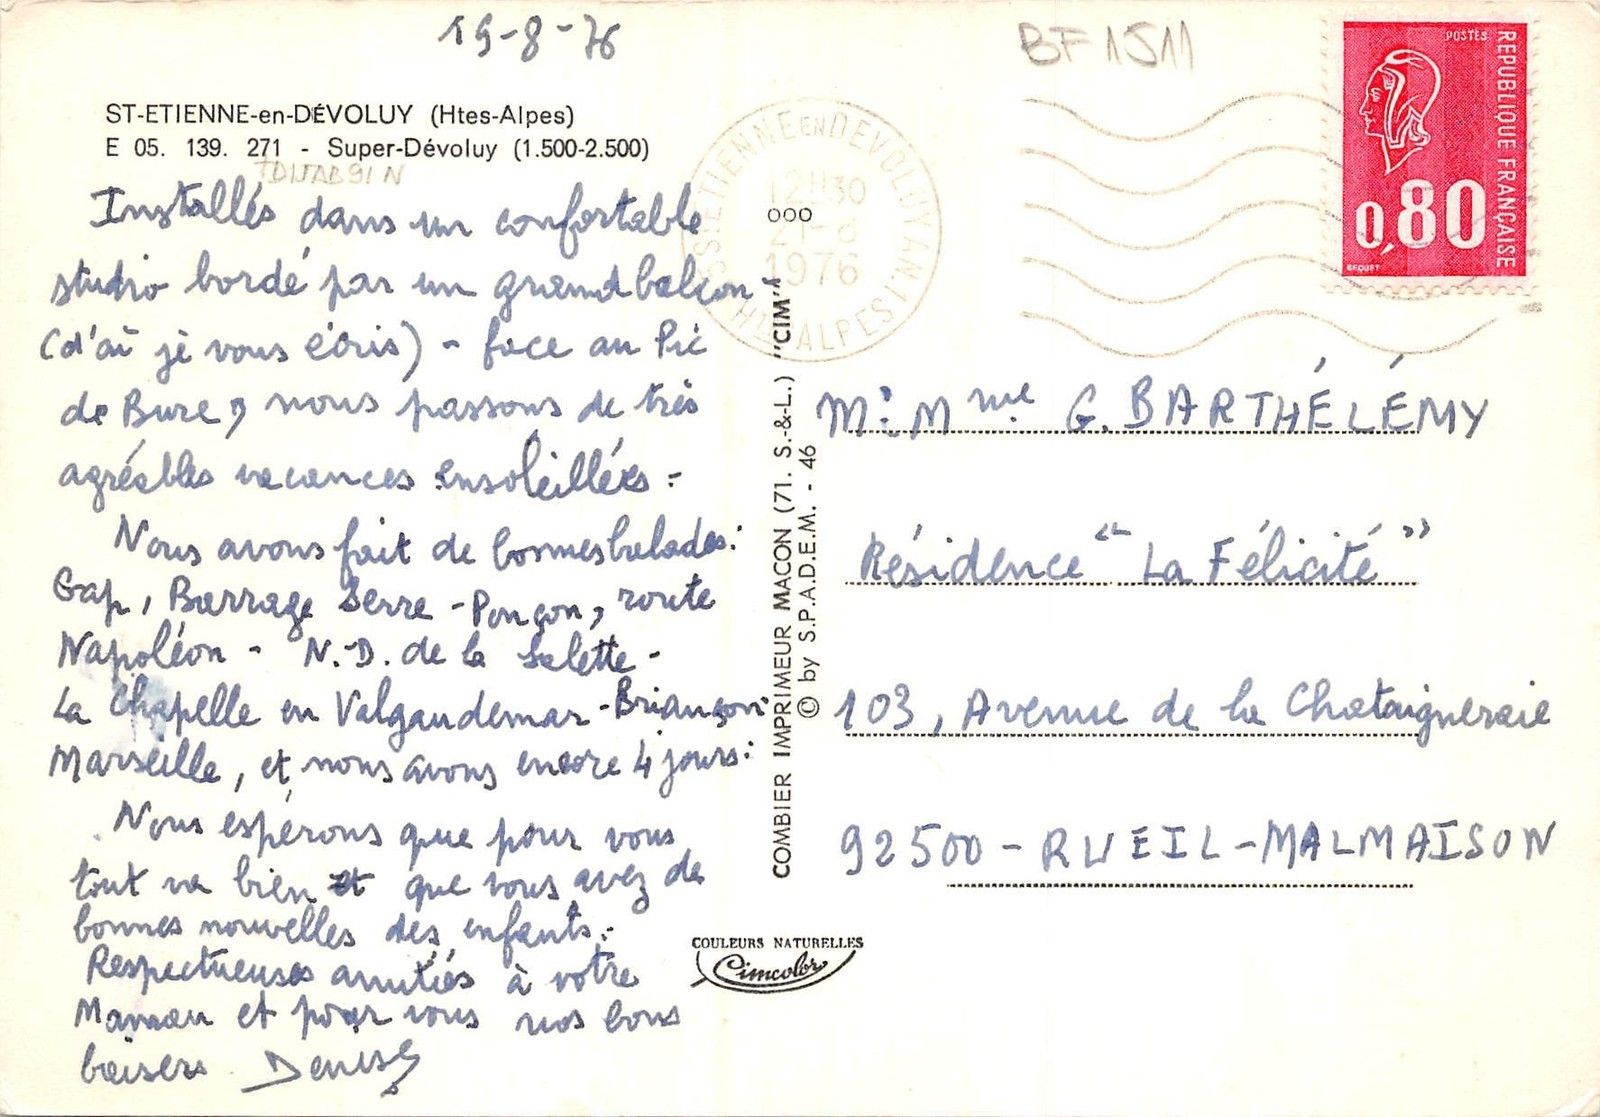 19-8-76
BF 1511
ST-ETIENNE-en-DÉVOLUY (Htes-Alpes)
E 05. 139. 271 - Super-Dévoluy (1.500-2.500)
Installés dans un confortable
studio bordé par un grand balcon -
(d'où je vous écris) - face au Pic
de Bure, nous passons de très
agréables vacances ensoleillées.
Nous avons fait de bonnes balades:
Gap, Barrage Serre-Ponçon, route
Napoléon - N.-D. de la Salette -
La Chapelle en Valgaudemar - Briançon
Marseille, et nous avons encore 4 jours.
Nous espérons que pour vous
tout va bien et que vous avez de
bonnes nouvelles des enfants.
Respectueuses amitiés à votre
Maman et pour vous nos bons
baisers Denise
ST-ETIENNE EN DEVOLUY AN.1
12H30
21-8
1976
HTES ALPES
ooo
COMBIER IMPRIMEUR MACON (71. S.-&-L.) "CIM"
© by S.P.A.D.E.M. - 46
COULEURS NATURELLES
Cimcolor
POSTES
REPUBLIQUE FRANÇAISE
0,80
BEQUET
Mr. Mme G. BARTHÉLÉMY
Résidence "La Félicité"
103, Avenue de la Chataigneraie
92500 - RUEIL-MALMAISON